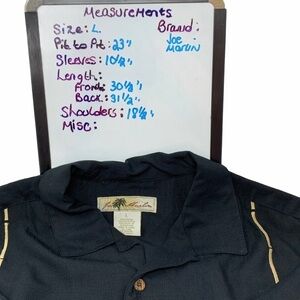 Measurements
Size: L Brand:
Pit to Pit: 23" Joe
Sleeves: 10½" Marlin
Length:
Front: 30½"
Back: 31½"
Shoulders: 18½"
Misc:
L